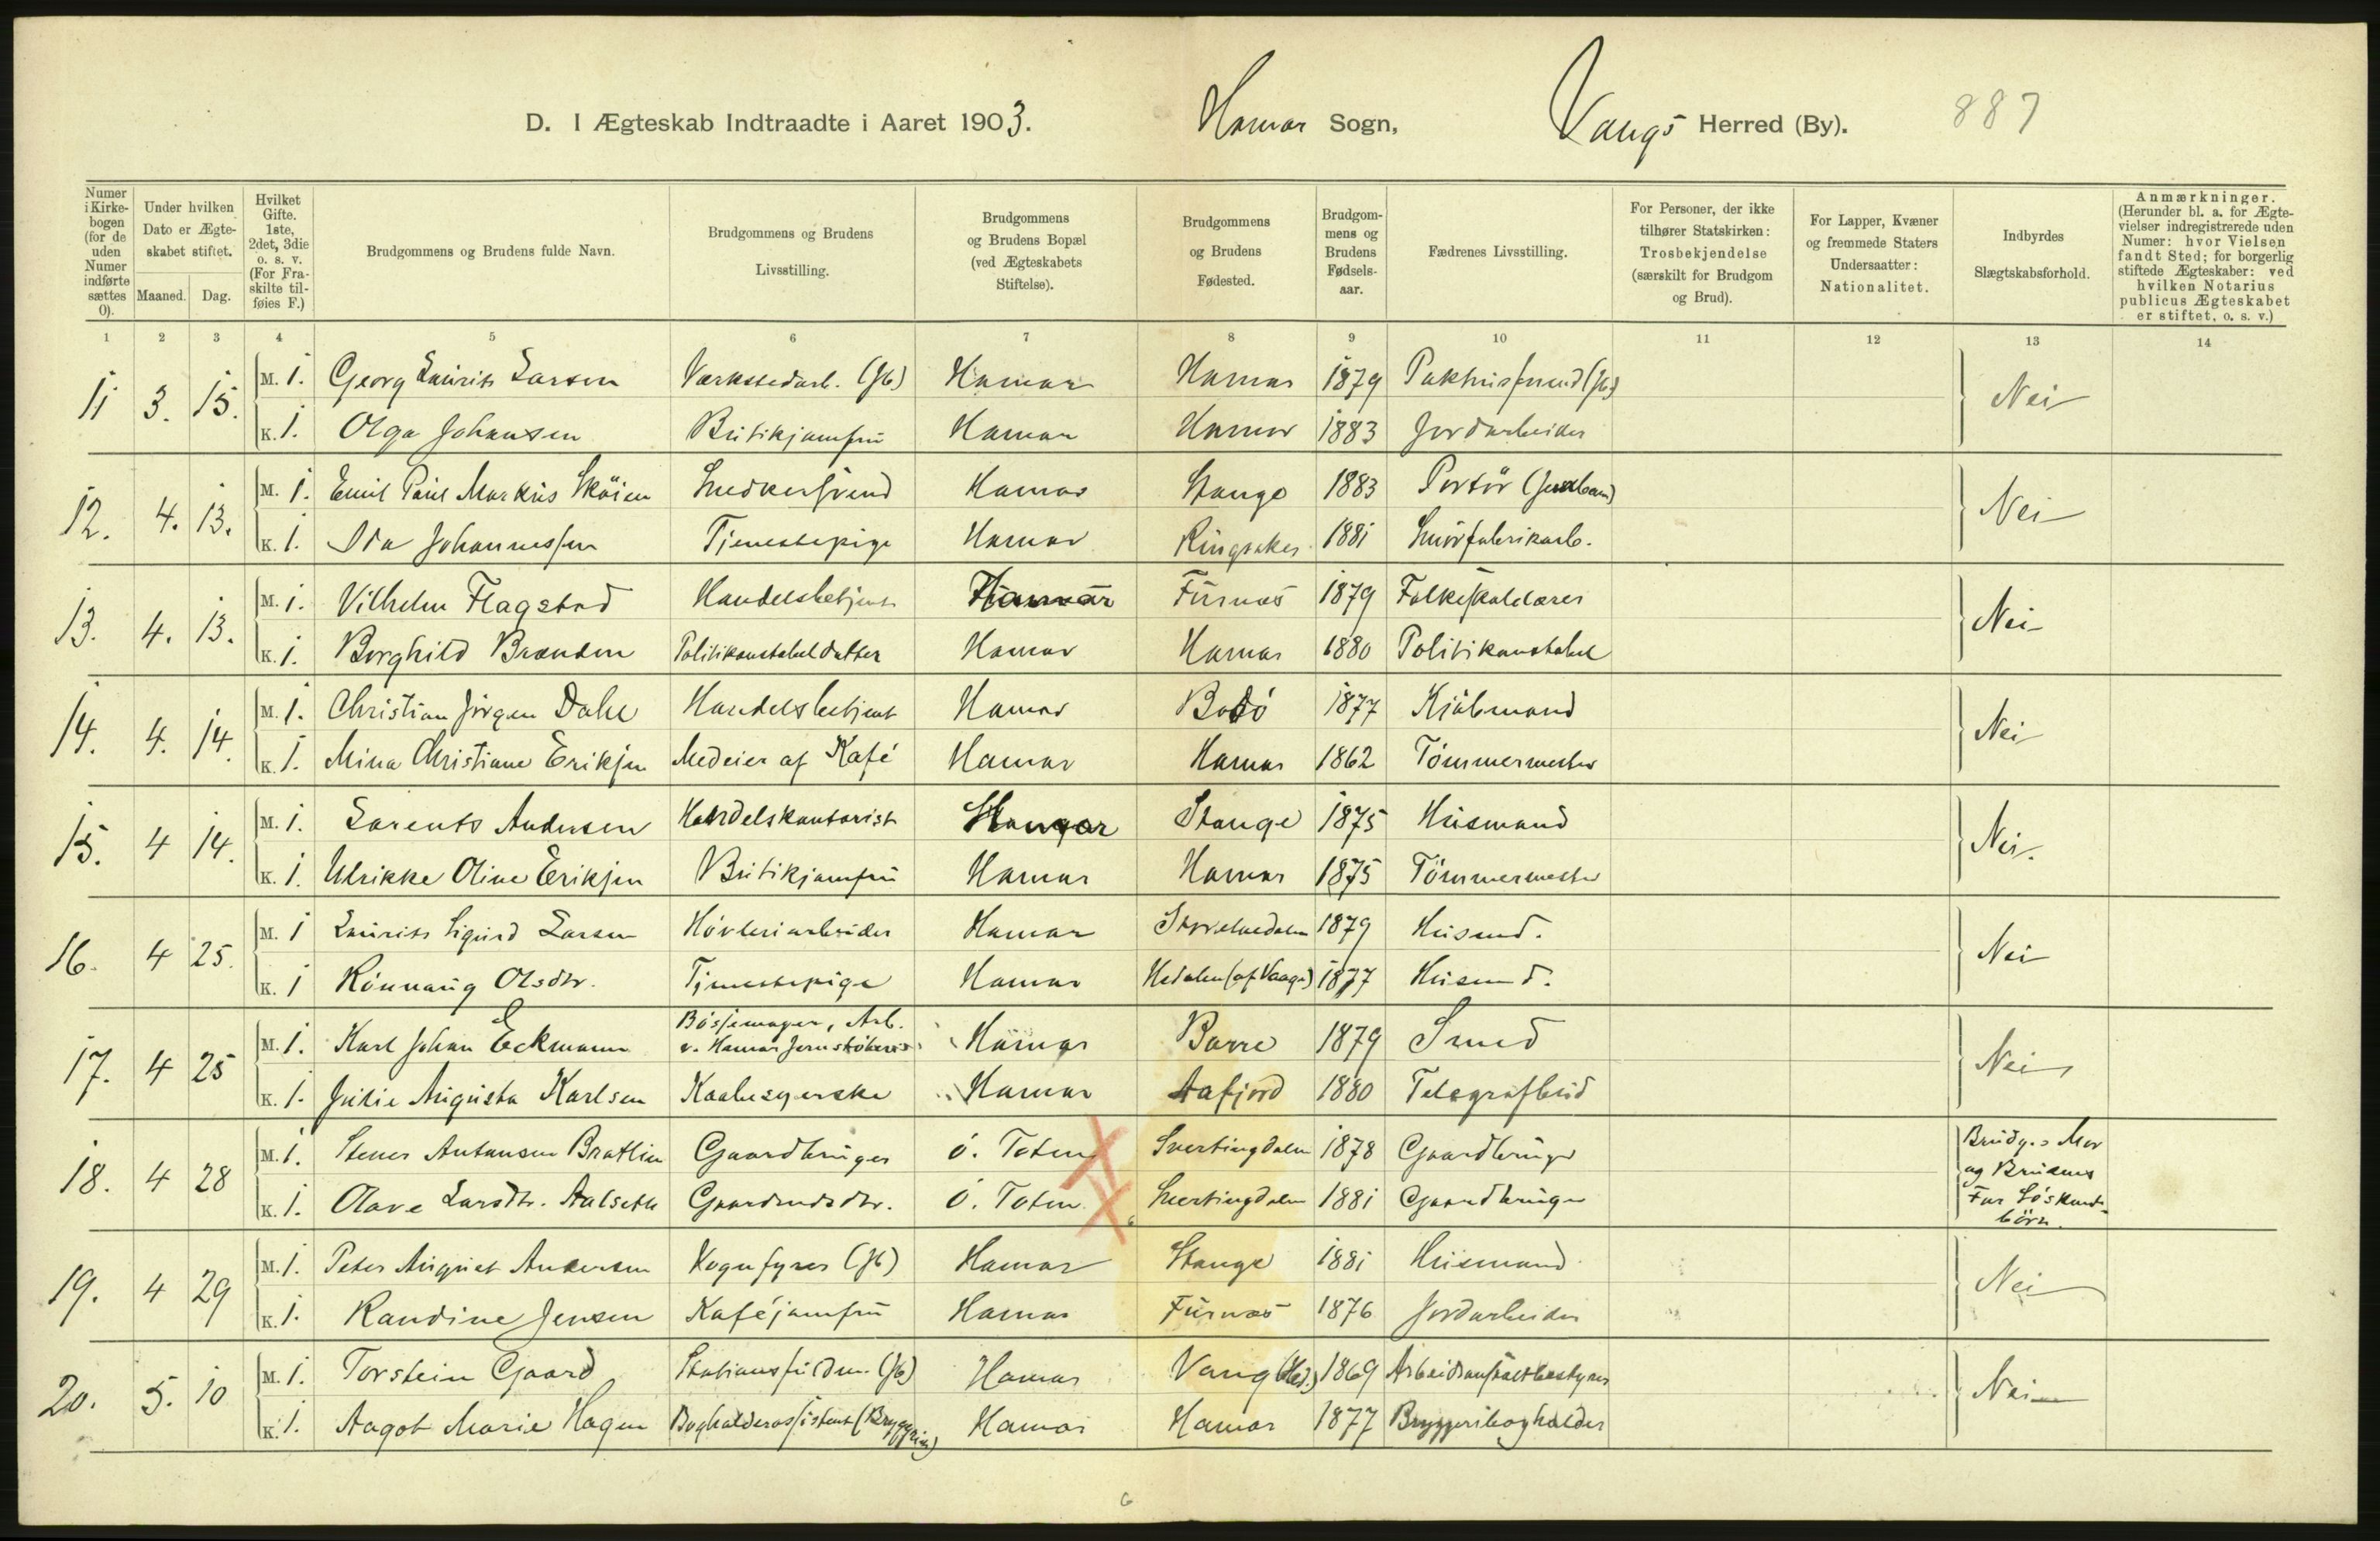 D. I Ægteskab Indtraadte i Aaret 1903. Hamar Sogn, Vangs Herred (By). 887
Numer i Kirkebogen (for de uden Numer indførte sættes 0). Under hvilken Dato er Ægteskabet stiftet. Maaned. Dag. Hvilket Gifte. 1ste, 2det, 3die o. s. v. (For Fraskilte tilføies F.) Brudgommens og Brudens fulde Navn. Brudgommens og Brudens Livsstilling. Brudgommens og Brudens Bopæl (ved Ægteskabets Stiftelse). Brudgommens og Brudens Fødested. Brudgommens og Brudens Fødselsaar. Fædrenes Livsstilling. For Personer, der ikke tilhører Statskirken: Trosbekjendelse (særskilt for Brudgom og Brud). For Lapper, Kvæner og fremmede Staters Undersaatter: Nationalitet. Indbyrdes Slægtskabsforhold. Anmærkninger. (Herunder bl. a. for Ægtevielser indregistrerede uden Numer: hvor Vielsen fandt Sted; for borgerlig stiftede Ægteskaber: ved hvilken Notarius publicus Ægteskabet er stiftet, o. s. v.)
1 2 3 4 5 6 7 8 9 10 11 12 13 14
11 3. 15. M. 1. Georg Laurits Larsen Værkstedarb. (Jb) Hamar Hamar 1879 (Jb) Nei
K. 1. Olga Johansen Butikjomfru Hamar Hamar 1883 Jordarbeider
12. 4. 13. M. 1. Emil Paul Markus Sköien Snedkersvend Hamar Stange 1883 Portör (Jernban) Nei
K. 1. Ida Johannessen Tjenestepige Hamar Ringsaker 1881 Smörfabrikarb.
13. 4. 13. M. 1. Vilhelm Flagstad Handelsbetjent Hamar Furnæs 1879 Folkeskolelærer Nei
K. 1. Borghild Brænden Politikonstabeldatter Hamar Hamar 1880 Politikonstabel
14. 4. 14. M. 1. Christian Jörgen Dahl Handelsbetjent Hamar Bodó 1877 Kjöbmand Nei
K. 1. Mina Christiane Eriksen Medeier af Kafé Hamar Hamar 1862 Tömmermester
15. 4 14. M. 1. Lorents Andersen Handelskontorist Hamar Stange 1875 Husmand Nei.
K. 1. Ulrikke Oline Eriksen Butikjomfru Hamar Hamar 1875 Tömmermester
16. 4 25. M. 1 Laurits Sigurd Larsen Hövleriarbeider Hamar Storelvedalen 1879 Husmd. Nei
K. 1 Rönnaug Olsdtr. Tjenestepige Hamar Hedalen (af Vaage) 1877 Husmd.
17. 4 25 M. 1. Karl Johan Eckmann Bössemager, Arb. v. Hamar Jernstöberi Hamar Borre 1879 Smed Nei
K. 1. Julie Augusta Karlsen Kaabesyerske Hamar Aafjord 1880 Telegrafbud
18. 4 28 M. 1. Stener Antonsen Bratlien Gaardbruger Ö. Toten Snertingdalen 1878 Gaardbruger Brudg.s Mor
K. 1. Olave Larsdtr. Aalseth Gaardmdsdtr. Ö. Toten Snertingdalen 1881 Gaardbruger og Brudens Far Söskendebörn.
19. 4 29 M. 1. Peter August Andersen Vognfyrer (Jb) Hamar Stange 1881 Husmand Nei
K. 1. Randine Jensen Kaféjomfru Hamar Furnæs 1876 Jordarbeider
20. 5. 10 M. 1. Torstein Gaard Stationsfuldm. (Jb) Hamar Vang (Hed.) 1869 Arbeidsanstaltbestyrer Nei
K. 1. Aagot Marie Hagen Bogholderassistent (Bryggeri) Hamar Hamar 1877 Bryggeribogholder